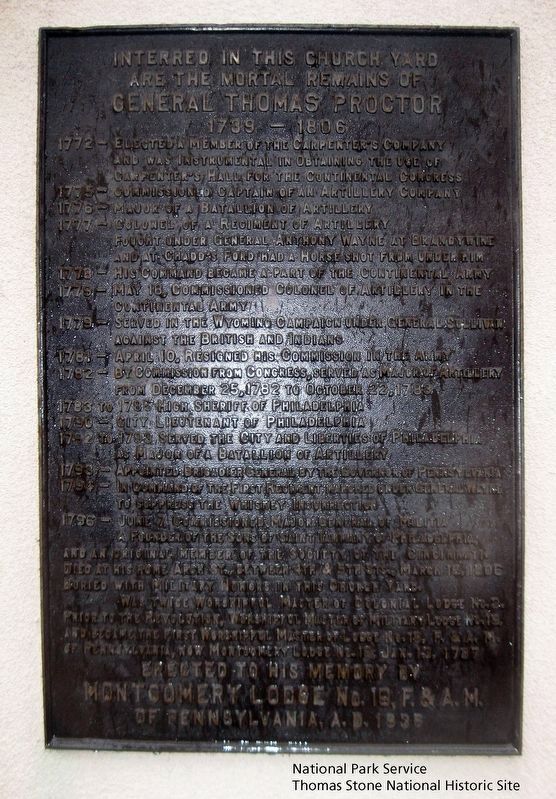 INTERRED IN THIS CHURCH YARD
ARE THE MORTAL REMAINS OF
GENERAL THOMAS PROCTOR
1739 — 1806
1772 — ELECTED A MEMBER OF THE CARPENTER'S COMPANY
AND WAS INSTRUMENTAL IN OBTAINING THE USE OF
CARPENTER'S HALL FOR THE CONTINENTAL CONGRESS
1775 — COMMISSIONED CAPTAIN OF AN ARTILLERY COMPANY
1776 — MAJOR OF A BATALLION OF ARTILLERY
1777 — COLONEL OF A REGIMENT OF ARTILLERY
FOUGHT UNDER GENERAL ANTHONY WAYNE AT BRANDYWINE
AND AT CHADD'S FORD HAD A HORSE SHOT FROM UNDER HIM
1778 — HIS COMMAND BECAME A PART OF THE CONTINENTAL ARMY
1779 — MAY 18, COMMISSIONED COLONEL OF ARTILLERY IN THE
CONTINENTAL ARMY
1779 — SERVED IN THE WYOMING CAMPAIGN UNDER GENERAL
AGAINST THE BRITISH AND INDIANS
1781 — APRIL 10, RESIGNED HIS COMMISSION IN THE ARMY
1782 — BY COMMISSION FROM CONGRESS, SERVED AS MAJOR OF ARTILLERY
FROM DECEMBER 25, 1782 TO OCTOBER 22, 1783
1783 TO 1785 HIGH SHERIFF OF PHILADELPHIA
1790 — CITY LIEUTENANT OF PHILADELPHIA
1792 TO 1793 SERVED THE CITY AND LIBERTIES OF PHILADELPHIA
AS MAJOR OF A BATALLION OF ARTILLERY
1793 — APPOINTED BRIGADIER GENERAL BY THE GOVERNOR OF PENNSYLVANIA
IN COMMAND OF THE FIRST REGIMENT MARCHED UNDER GENERAL WAYNE
TO SUPPRESS THE WHISKEY INSURRECTION
1796 — JUNE 7, COMMISSIONED MAJOR GENERAL OF MILITIA
A FOUNDER OF THE SONS OF SAINT TAMMANY OF PHILADELPHIA,
AND AN ORIGINAL MEMBER OF THE SOCIETY OF THE CINCINNATI
DIED AT HIS HOME ARCH ST., BETWEEN 4TH & 5TH STS. MARCH 16, 1806
BURIED WITH MILITARY HONORS IN THIS CHURCH YARD.
WAS TWICE WORSHIPFUL MASTER OF COLONIAL LODGE NO. 2,
PRIOR TO THE REVOLUTION, WORSHIPFUL MASTER OF MILITARY LODGE NO. 19,
AND BECAME THE FIRST WORSHIPFUL MASTER OF LODGE NO. 19, F. & A. M.
OF PENNSYLVANIA, NOW MONTGOMERY LODGE NO. 19, JAN. 13, 1787
ERECTED TO HIS MEMORY BY
MONTGOMERY LODGE NO. 19, F. & A. M.
OF PENNSYLVANIA, A. D. 1936
National Park Service
Thomas Stone National Historic Site